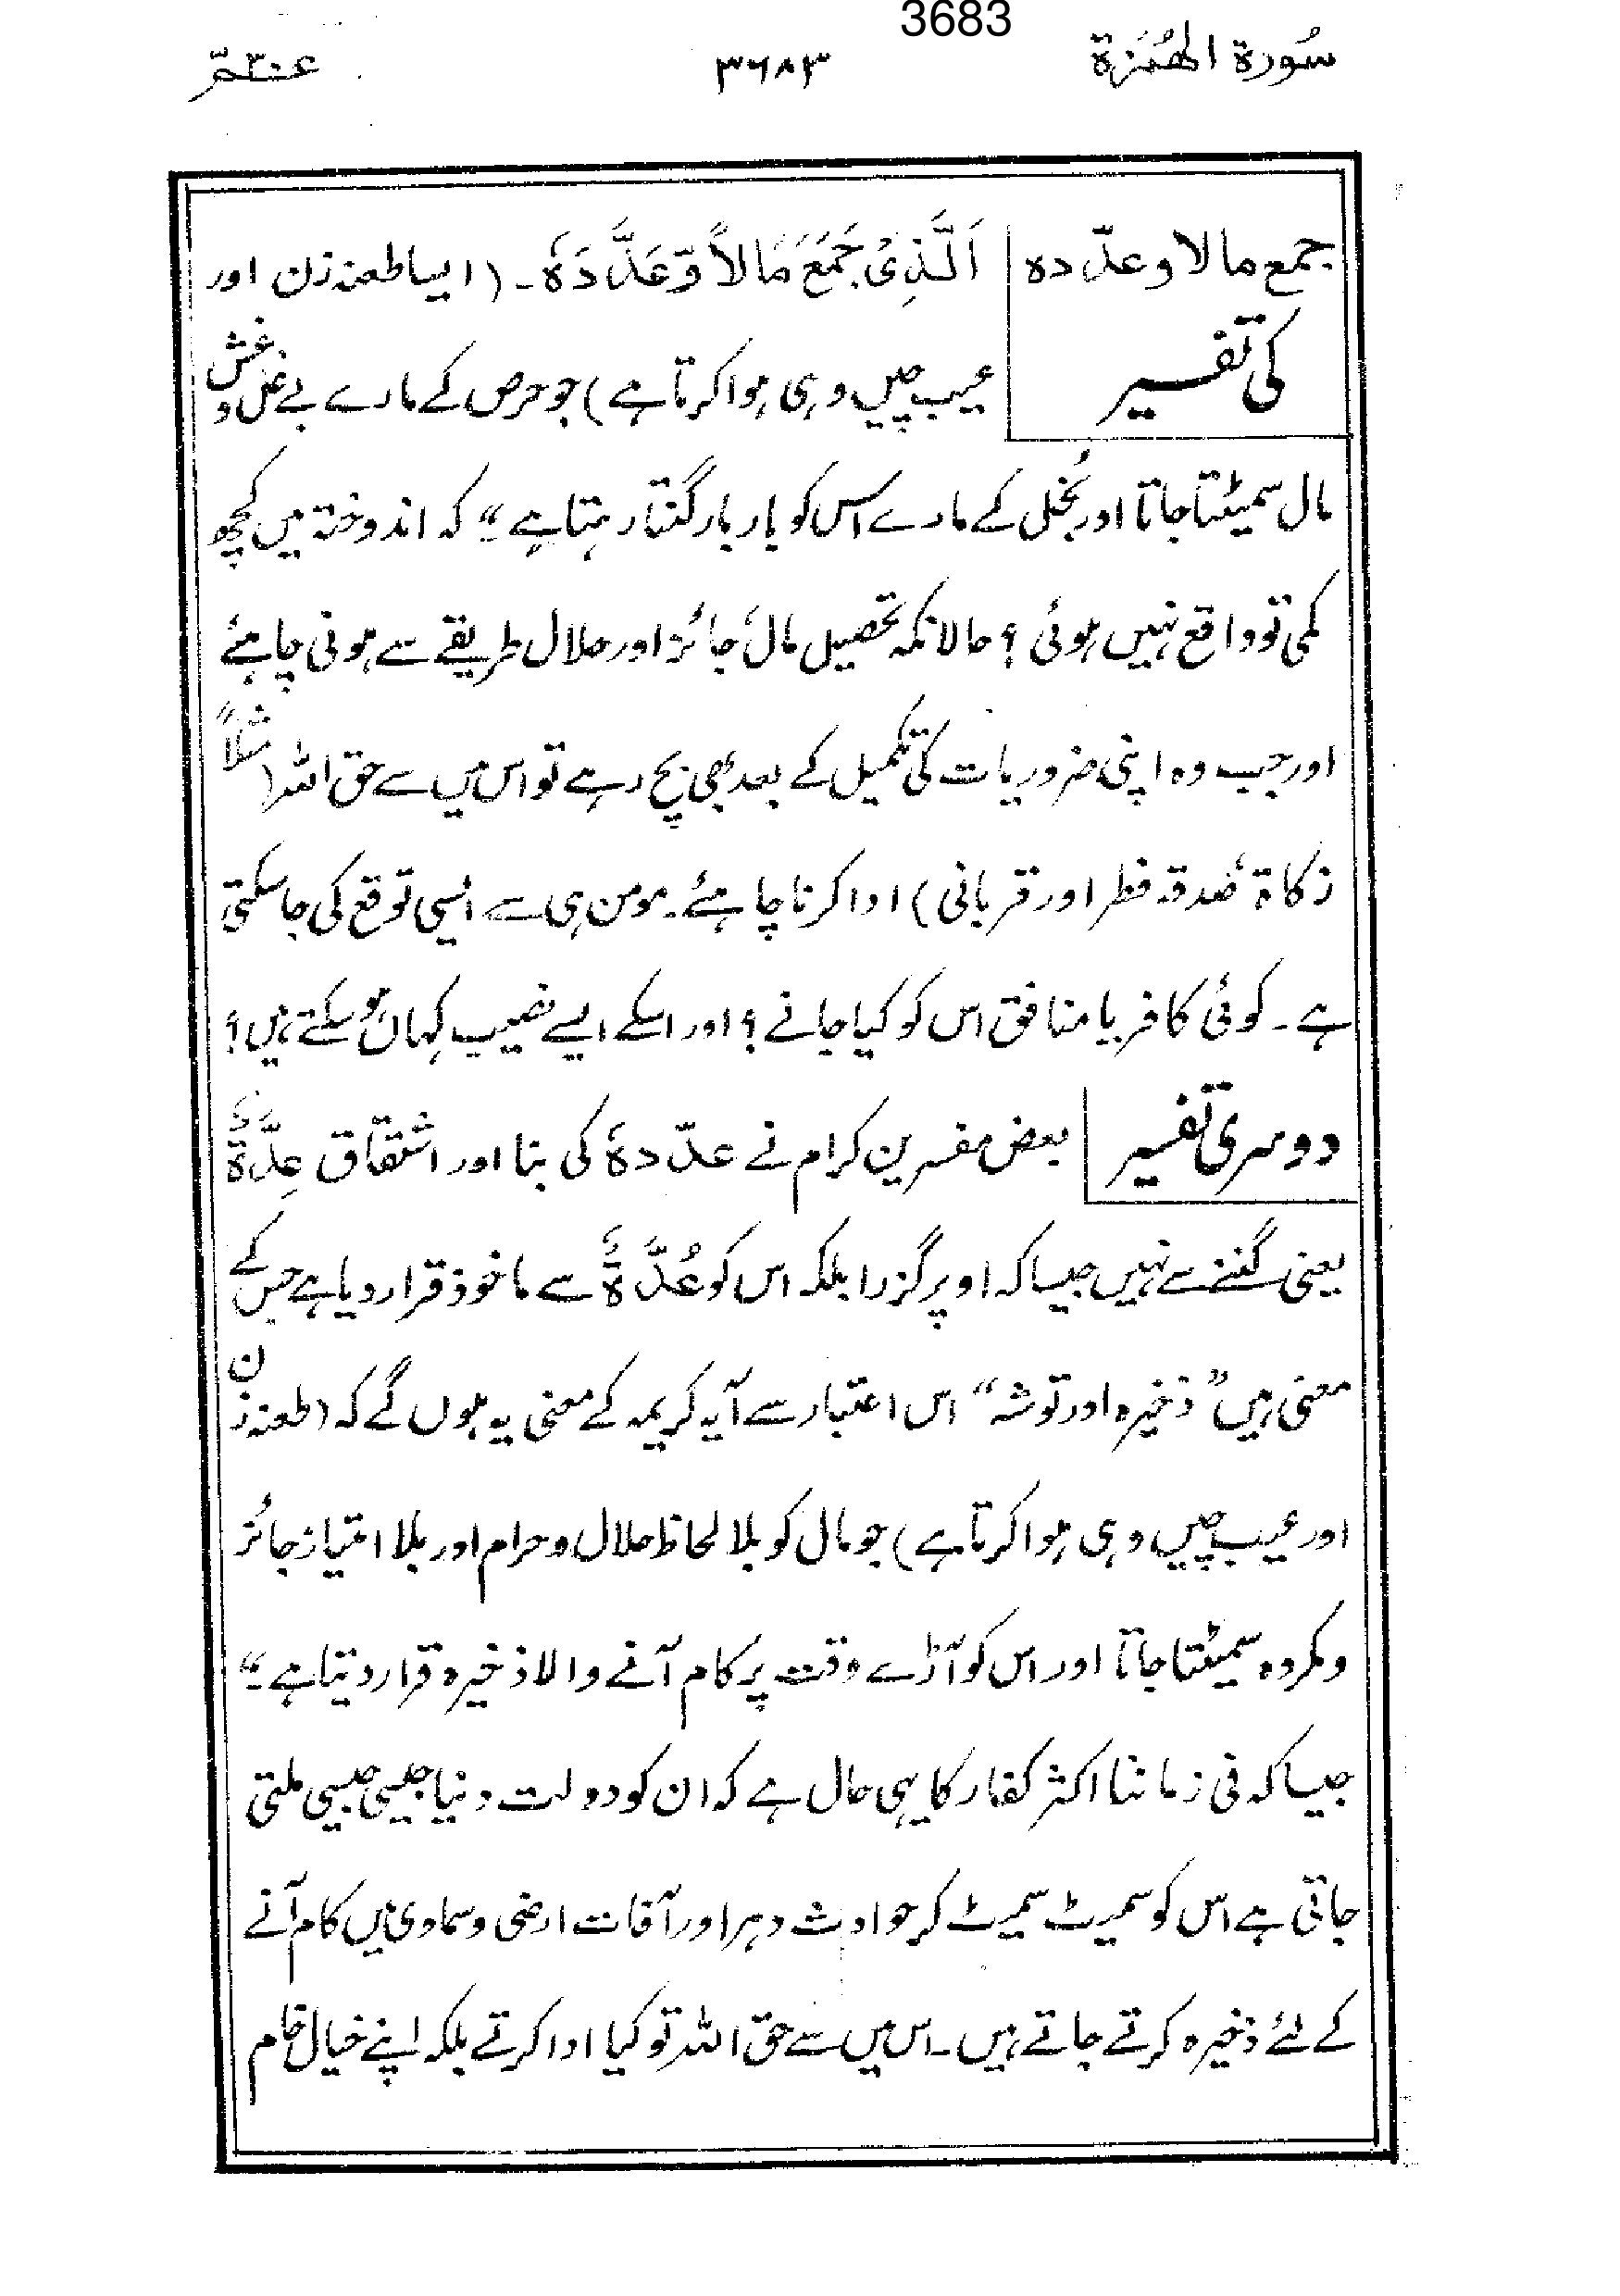 3683
سُورة الهُمَزة ۳۶۸۳ عۤمّ ۳۰
جمع مالا وعدّده اَلَّذِیْ جَمَعَ مَالاً وَّعَدَّدَہٗ ۔ (ایسا طعنہ زن اور
کی تفسیر عیب چیں وہی ہوا کرتا ہے) جو حرص کے مارے بے غل و غش
مال سمیٹتا جاتا اور بُخل کے مارے اس کو بار بار گنتا رہتا ہے“ کہ اندوختہ میں کچھ
کمی تو واقع نہیں ہوئی؟ حالانکہ تحصیل مال جائز اور حلال طریقے سے ہونی چاہئے
اور جب وہ اپنی ضروریات کی تکمیل کے بعد بھی بچ رہے تو اس میں سے حق اللہ (مثلاً
زکاۃ، صدقہ فطر اور قربانی) ادا کرنا چاہئے۔ مومن ہی سے ایسی توقع کی جا سکتی
ہے۔ کوئی کافر یا منافق اس کو کیا جانے؟ اور اسکے ایسے نصیب کہاں ہو سکتے ہیں؟
دوسری تفسیر بعض مفسرین کرام نے عدّدہٗ کی بنا اور اشتقاق عِدَّۃٌ
یعنی گننے سے نہیں جیسا کہ اوپر گزرا بلکہ اس کو عُدَّۃٌ سے ماخوذ قرار دیا ہے جس کے
معنی ہیں ”ذخیرہ اور توشہ“ اس اعتبار سے آیہ کریمہ کے معنی یہ ہوں گے کہ (طعنہ زن
اور عیب چیں وہی ہوا کرتا ہے) جو مال کو بلا لحاظ حلال و حرام اور بلا امتیاز جائز
و مکروہ سمیٹتا جاتا اور اس کو آڑے وقت پر کام آنے والا ذخیرہ قرار دیتا ہے“
جیسا کہ فی زماننا اکثر کفار کا یہی حال ہے کہ ان کو دولت دنیا جیسی جیسی ملتی
جاتی ہے اس کو سمیٹ سمیٹ کر حوادث دہر اور آفات ارضی و سماوی میں کام آنے
کے لئے ذخیرہ کرتے جاتے ہیں۔ اس میں سے حق اللہ تو کیا ادا کرتے بلکہ اپنے خیال خام